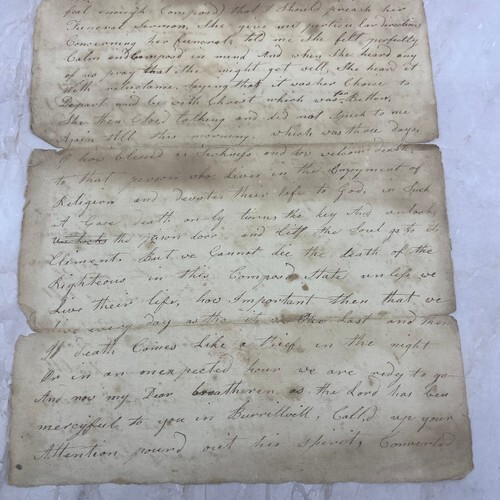 enough Composed) that I should preach her
Funeral Sermon, She give me particular directions
Concerning her funeral, told me She felt perfectly
Calm and Composd in mind And when She heard any
of us pray that She might get well, She heard it
With reluctance. Saying that it was her Choice to
Depart and be with Christ which was far Better,
She then Closd talking and did not Speak to me
Again till this morning, which was three days,
O how blessed is Sickness and how welcome death
to that person who lives in the Enjoyment of
Religion and devotes their life to God, in Such
A Case death only turns the key And unlocks
the prison door and lets the Soul go to its
Element. But we Cannot die the death of the
Righteous in this Composd State unless we
Live their life, how Important then that we
live every day as tho it was the last and then
If death Comes Like a thief in the night
Or in an unexpected hour we are redy to go
And now my Dear breatheren as the Lord has been
mercyful to you in Burrellvill, Calld up your
Attention pourd out his Spirit, Converted